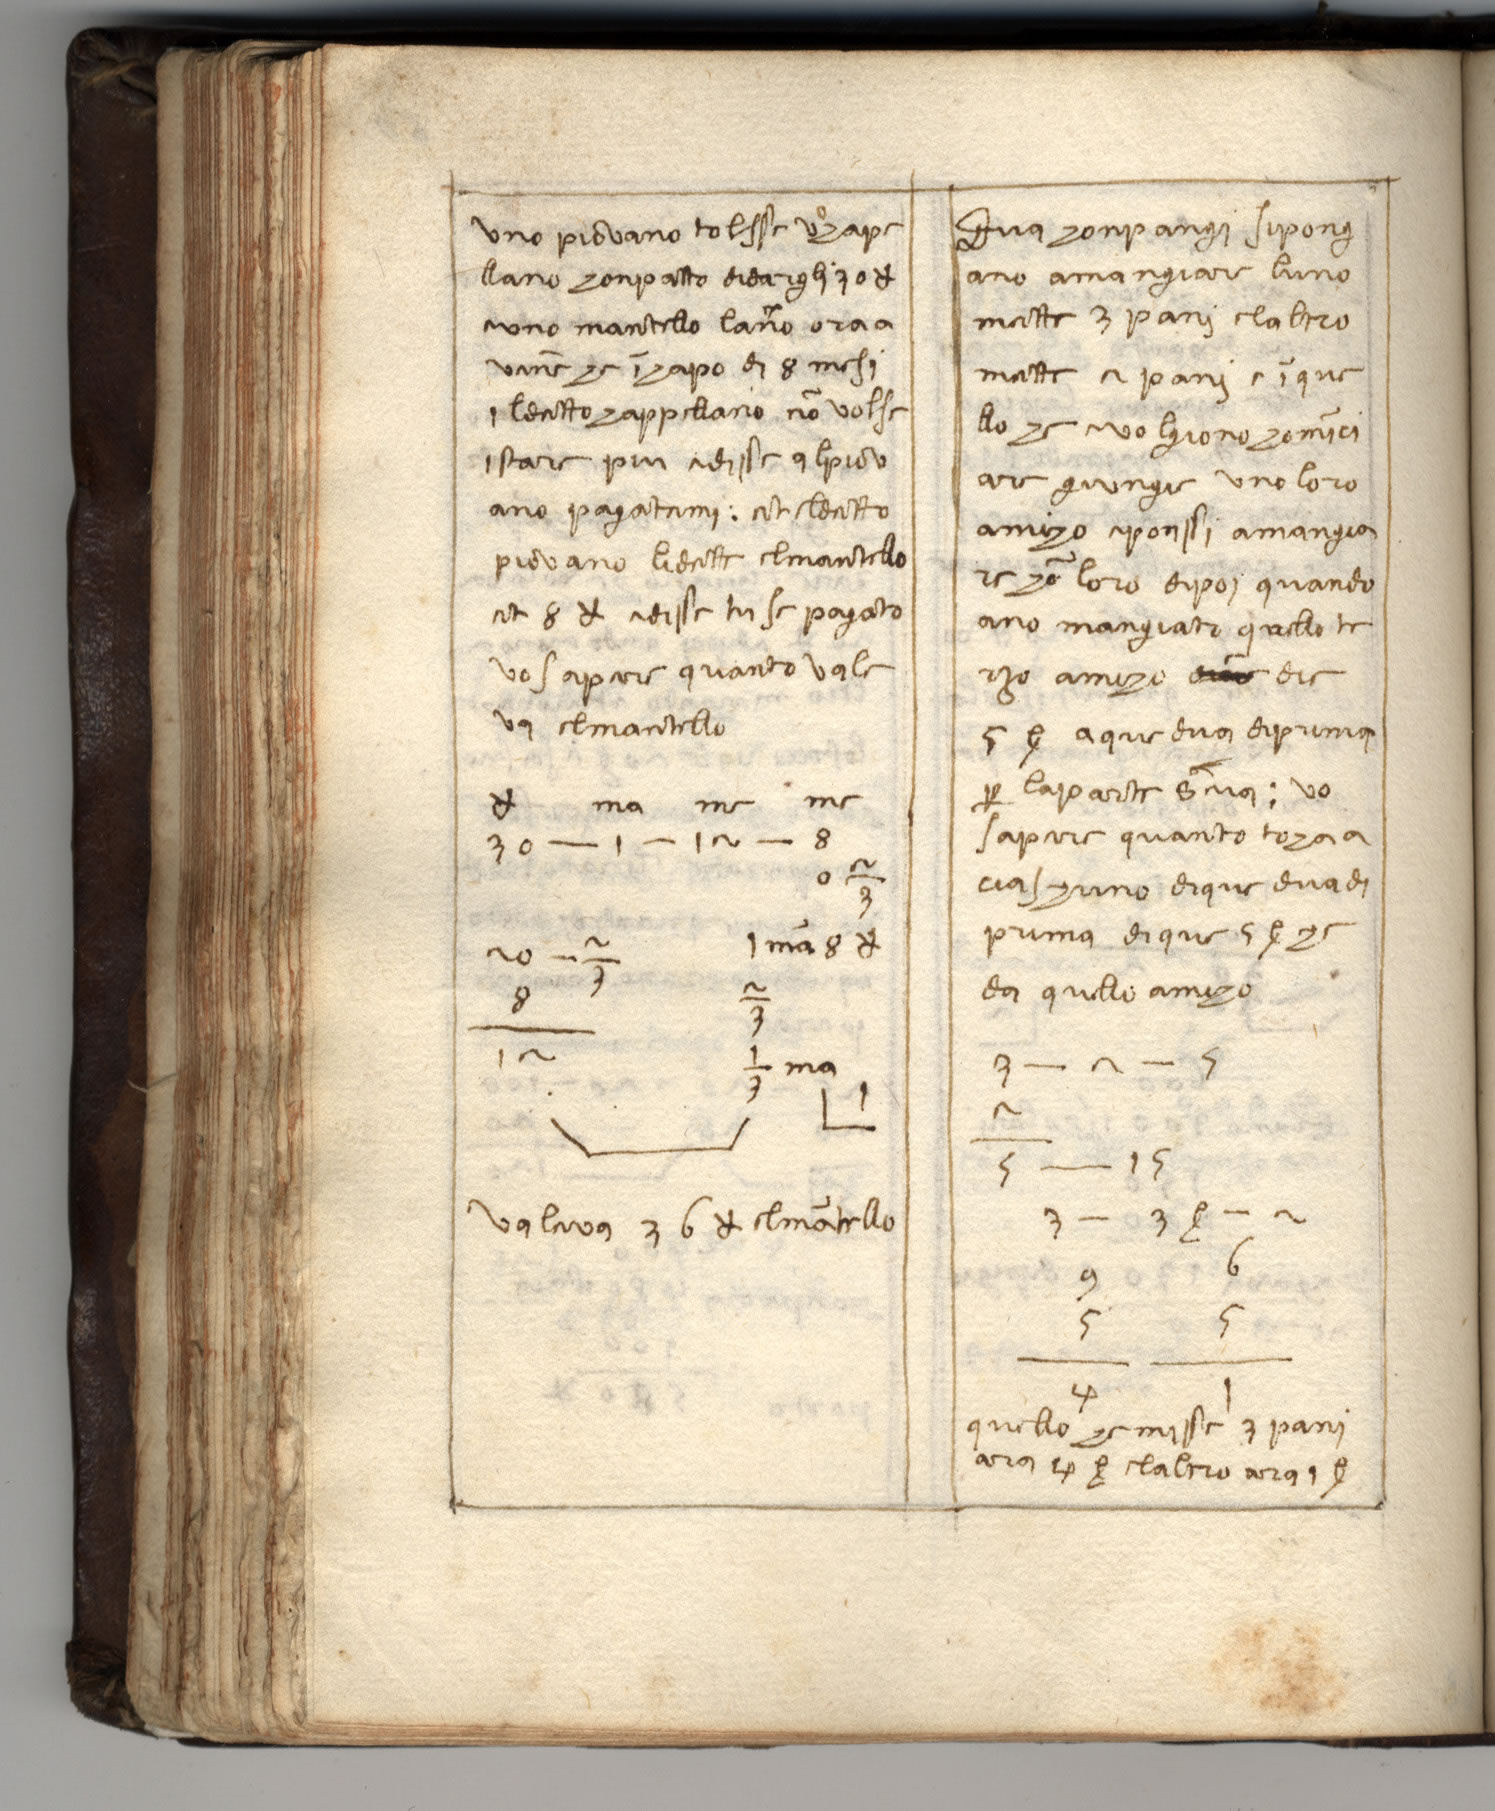 uno piovano tolsse uº zape
llano zonpatto didargli 30 ₰
euno mantello lāño oraa
uiene ze ī zapo di 8 mesi
ildetto zappellano nō volse
istare piu edisse alpiov
ano pagatemi: et eldetto
piovano lidette elmantello
et 8 ₰ edisse tu se pagato
vo sapere quanto vale
va elmantello
₰ ma me me
30 — 1 — 12 — 8
0 2/3
20 — 2/3 1 mā 8 ₰
8 2/3
12 1/3 ma
1
valeva 36 ₰ elmātello
Dua zonpangi sipong
ano amangiare luno
mette 3 pani elaltro
mette 2 pani e ī que
llo ze evolgiono zomīci
are giungie uno loro
amizo eponsi amangia
re zō loro dipoi quando
ano mangiato quello te
rzo amizo die
5 ₰ aque dua diprima
p laparte sūa; vo
sapere quanto tozaa
ciaszuno dique dua di
prima dique 5 ₰ ze
da quello amizo
3 — 2 — 5
2
5 — 15
3 — 3 ₰ — 2
9 6
5 5
4 1
quello ze misse 3 pani
ara 4 ₰ elaltro ara 1 ₰